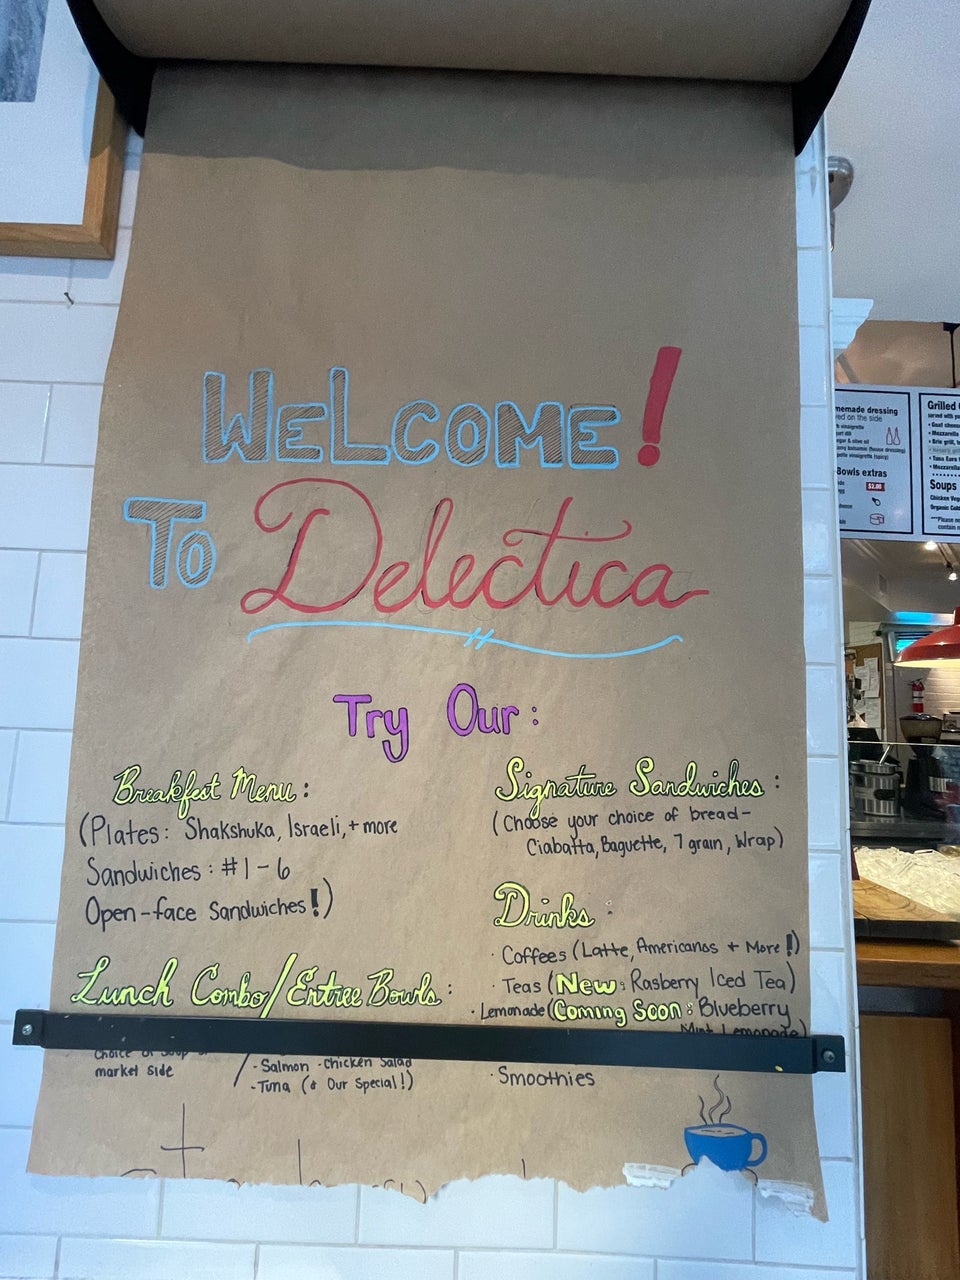 WELCOME!
To Delectica
Try Our:
Breakfest Menu:
(Plates: Shakshuka, Israeli, + more
Sandwiches: #1-6
Open-face Sandwiches!)
Lunch Combo/Entree Bowls:
Choice of Soup or
market side
-Salmon -Chicken Salad
-Tuna (& Our Special!)
Signature Sandwiches:
(Choose your choice of bread-
Ciabatta, Baguette, 7 grain, Wrap)
Drinks:
· Coffees (Latte, Americanos + More!)
· Teas (New: Rasberry Iced Tea)
· Lemonade (Coming Soon: Blueberry
Mint Lemonade)
· Smoothies
dressing
on the side
vinaigrette
& olive oil
(house dressing)
vinaigrette (spicy)
Bowls extras
$2.00
Grilled
served with
• Goat
• Mozzarella
• Brie
• Tuna
• Mozzarella
Soups
Chicken
Organic
***Please
contain